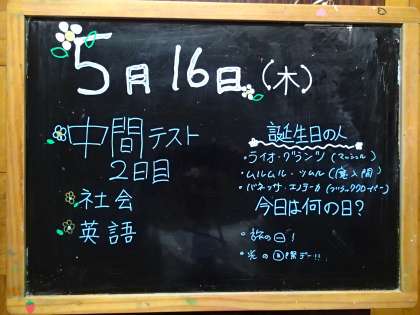 5月16日(木)
中間テスト
2日目
社会
英語
誕生日の人
・ライオ・グランツ(マッシュル)
・ムルムル・ツムル(魔入間)
・バネッサ・エノテーカ(ブラッククローバー)
今日は何の日?
・旅の日!
・光の国際デー!!